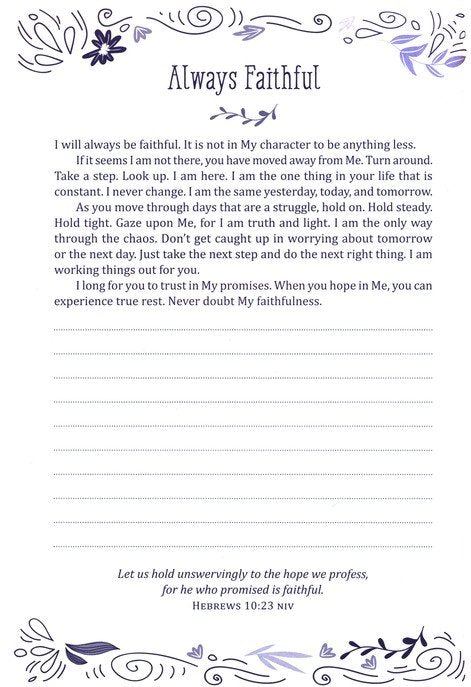 Always Faithful
I will always be faithful. It is not in My character to be anything less.
If it seems I am not there, you have moved away from Me. Turn around.
Take a step. Look up. I am here. I am the one thing in your life that is
constant. I never change. I am the same yesterday, today, and tomorrow.
As you move through days that are a struggle, hold on. Hold steady.
Hold tight. Gaze upon Me, for I am truth and light. I am the only way
through the chaos. Don't get caught up in worrying about tomorrow
or the next day. Just take the next step and do the next right thing. I am
working things out for you.
I long for you to trust in My promises. When you hope in Me, you can
experience true rest. Never doubt My faithfulness.
Let us hold unswervingly to the hope we profess,
for he who promised is faithful.
HEBREWS 10:23 NIV